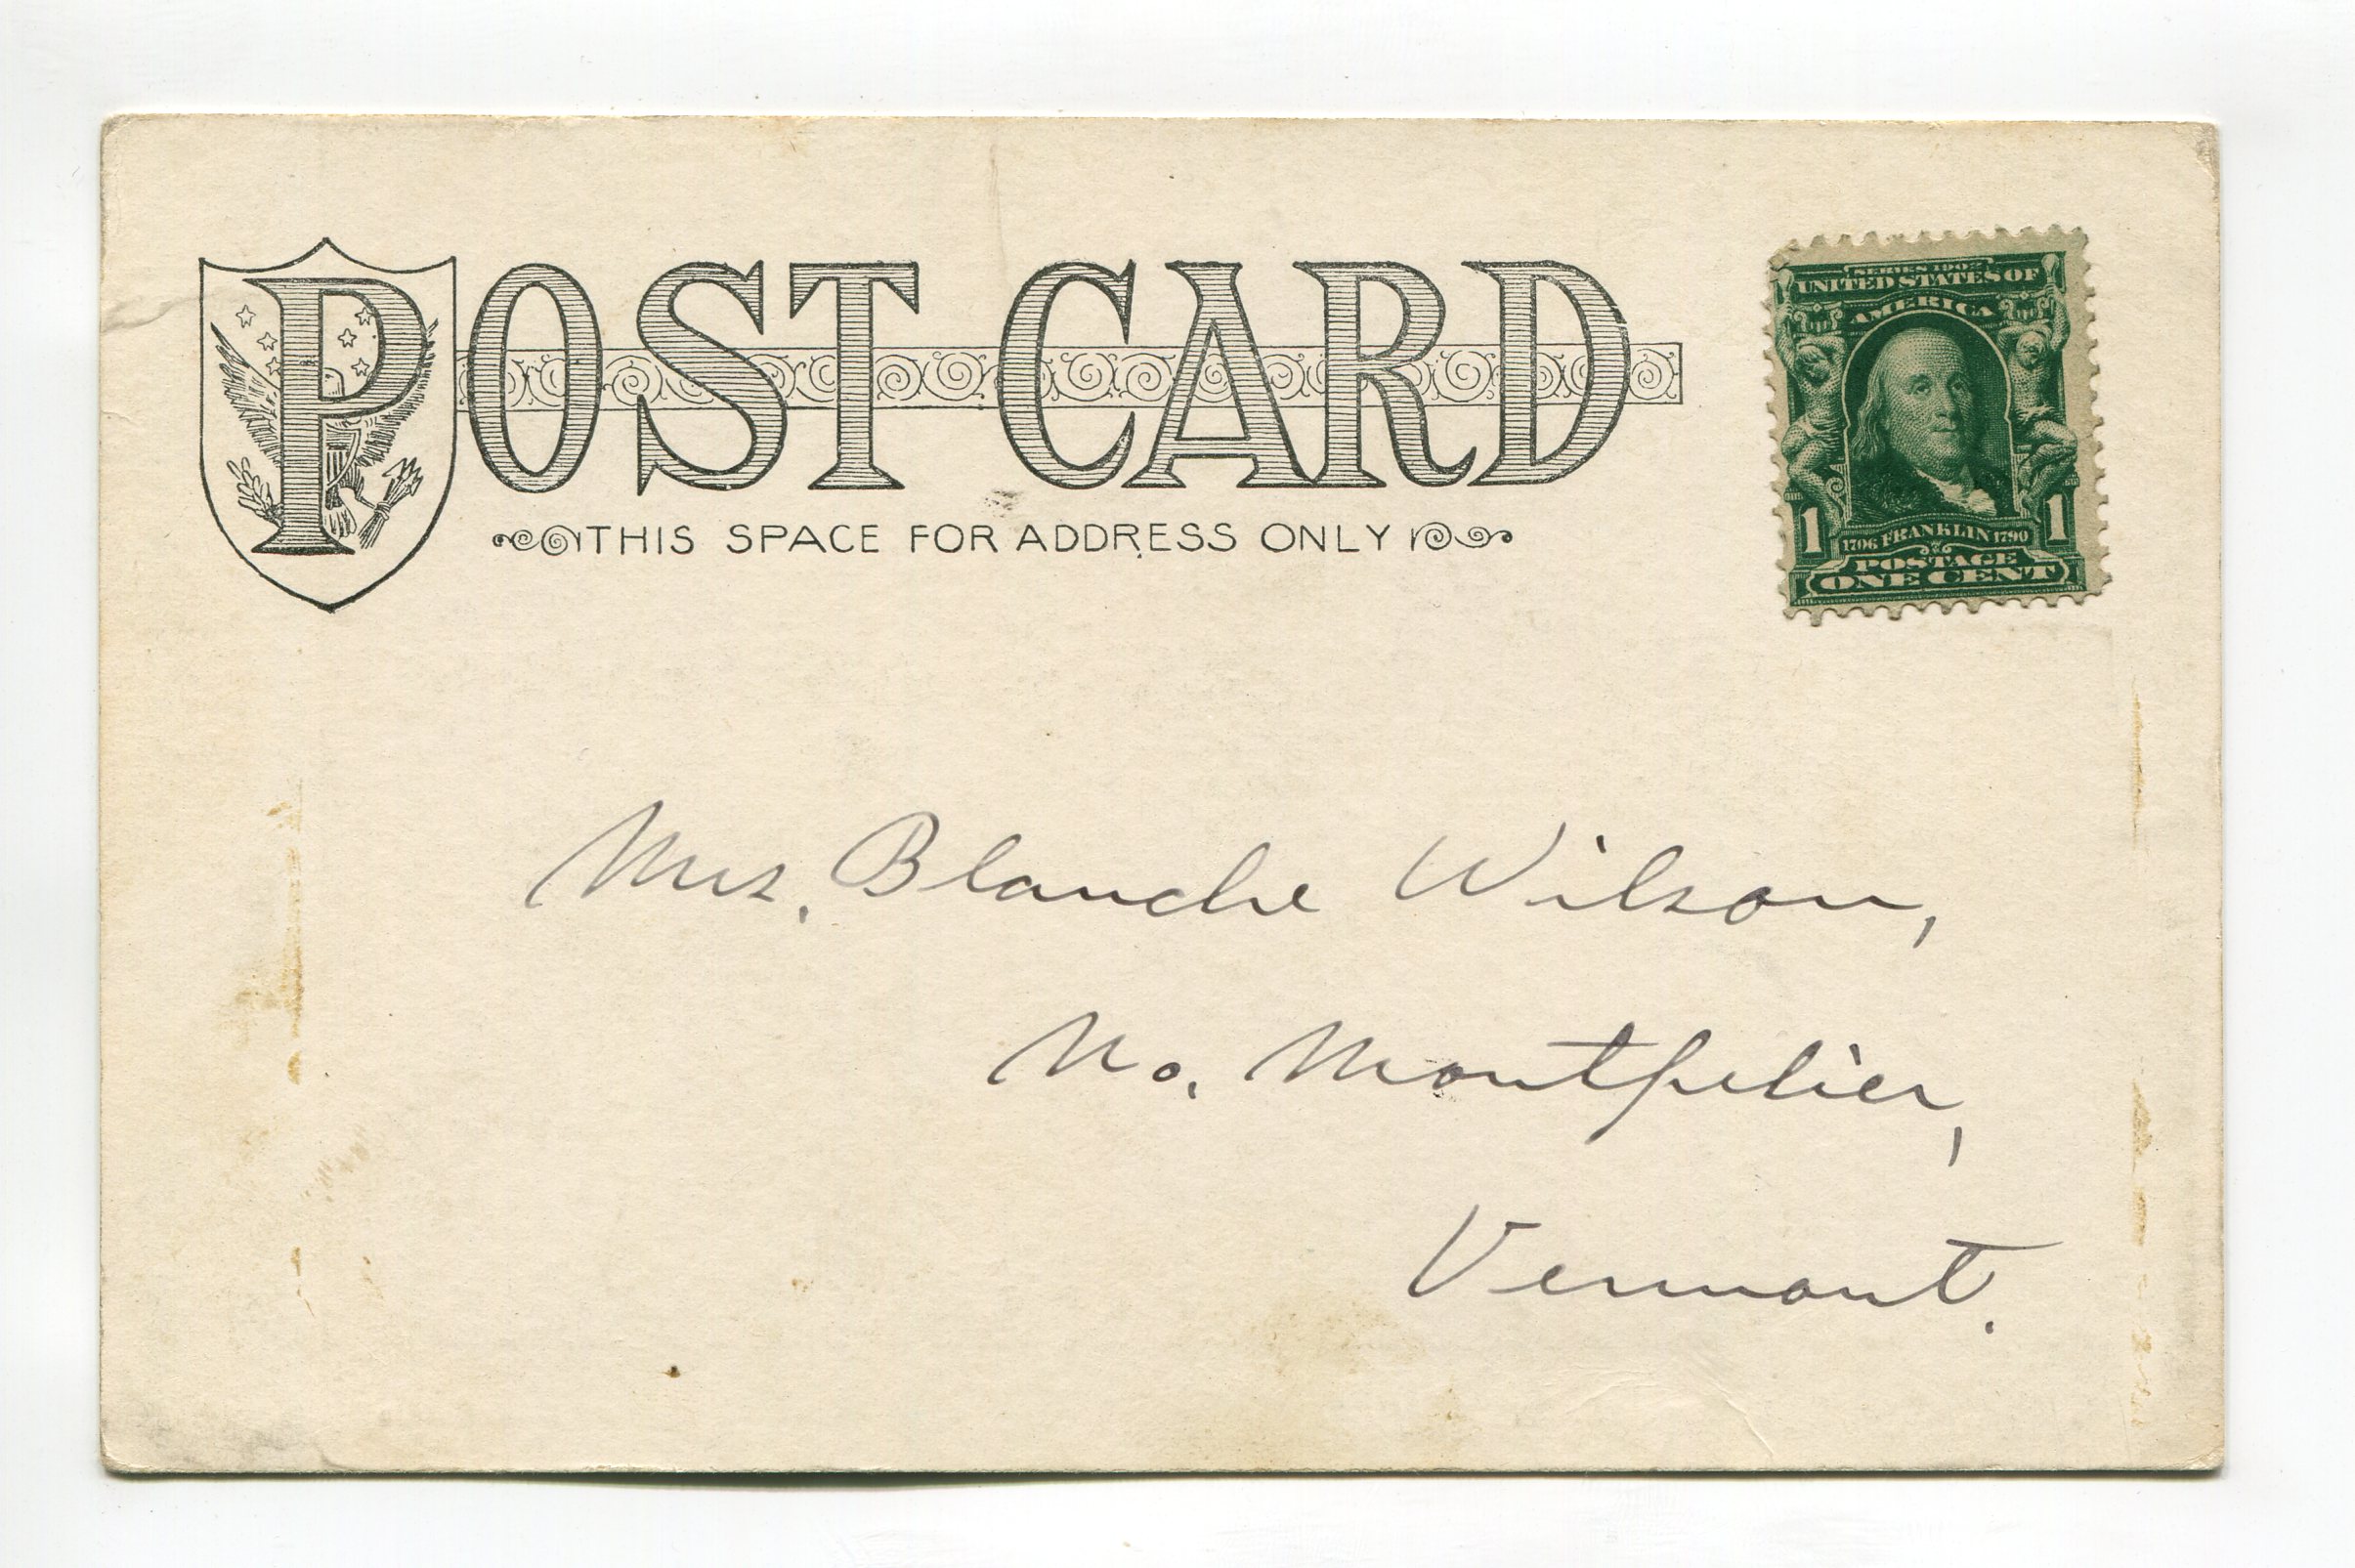 POST CARD
THIS SPACE FOR ADDRESS ONLY
SERIES 1902
UNITED STATES OF
AMERICA
1 1
1706 FRANKLIN 1790
POSTAGE
ONE CENT
Mrs. Blanche Wilson,
No. Montpelier,
Vermont.